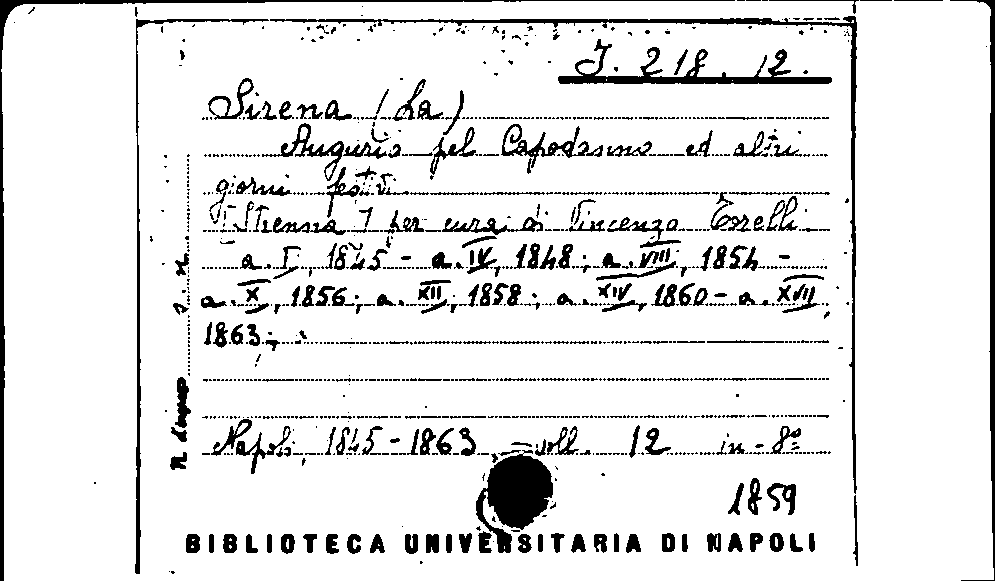 J. 218. 12.
Sirena (La)
Augurio pel Capodanno ed altri
giorni festivi.
[Strenna] per cura di Vincenzo Torelli.
a. I, 1845 - a. IV, 1848; a. VIII, 1854 -
a. X, 1856; a. XII, 1858; a. XIV, 1860 - a. XVII,
1863;
N. d'ingresso s. n.
Napoli, 1845-1863 - voll. 12 in-8º
1859
BIBLIOTECA UNIVERSITARIA DI NAPOLI